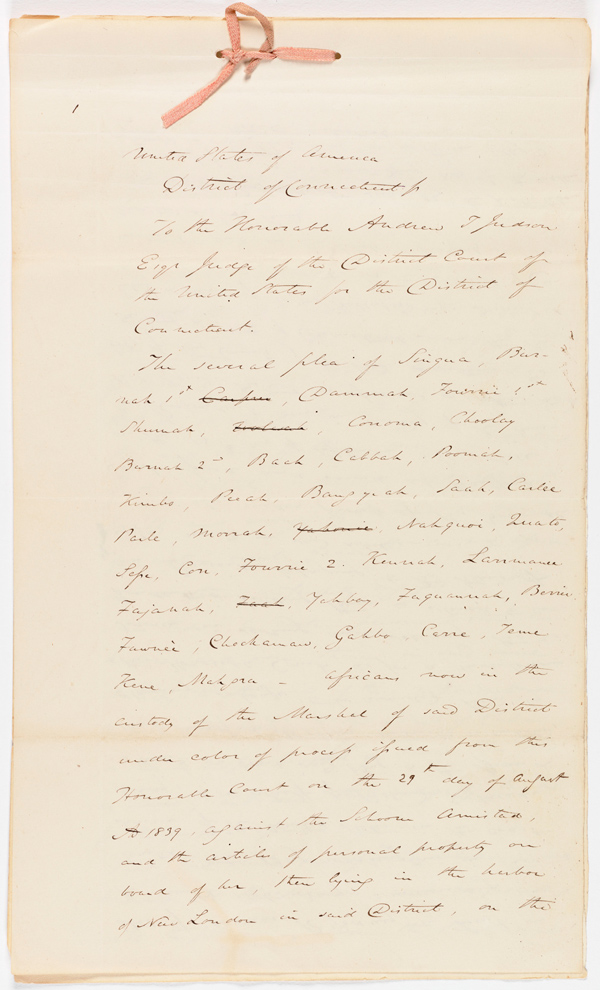 1
United States of America
District of Connecticut ss
To the Honorable Andrew T Judson
Esqr Judge of the District Court of
the United States for the District of
Connecticut.
The several plea of Sinqua, Bur-
nah 1st Carpree, Dammah, Fourrie 1st
Shumah, , Conoma, Choolay
Burnah 2d, Baah, Cabbah, Poomah,
Kimbo, Peeah, Bang-yeah, Saah, Carlee
Parle, Morrah, Yahonie, Nahquoi, Quato,
Sesse, Con, Fourrie 2. Kennah, Lammane
Fajanah, Faah, Yahboy, Faquannah, Berrie
Fawnie, Chockamaw, Gahbo Carre, Teme
Kene, Mahgra – africans now in the
custody of the Marshal of said District
under color of process issued from this
Honorable Court on the 29th day of August
AD 1839, against the Schoonr Amistad,
and the articles of personal property on
board of her, then lying in the harbor
of New London in said District, on the